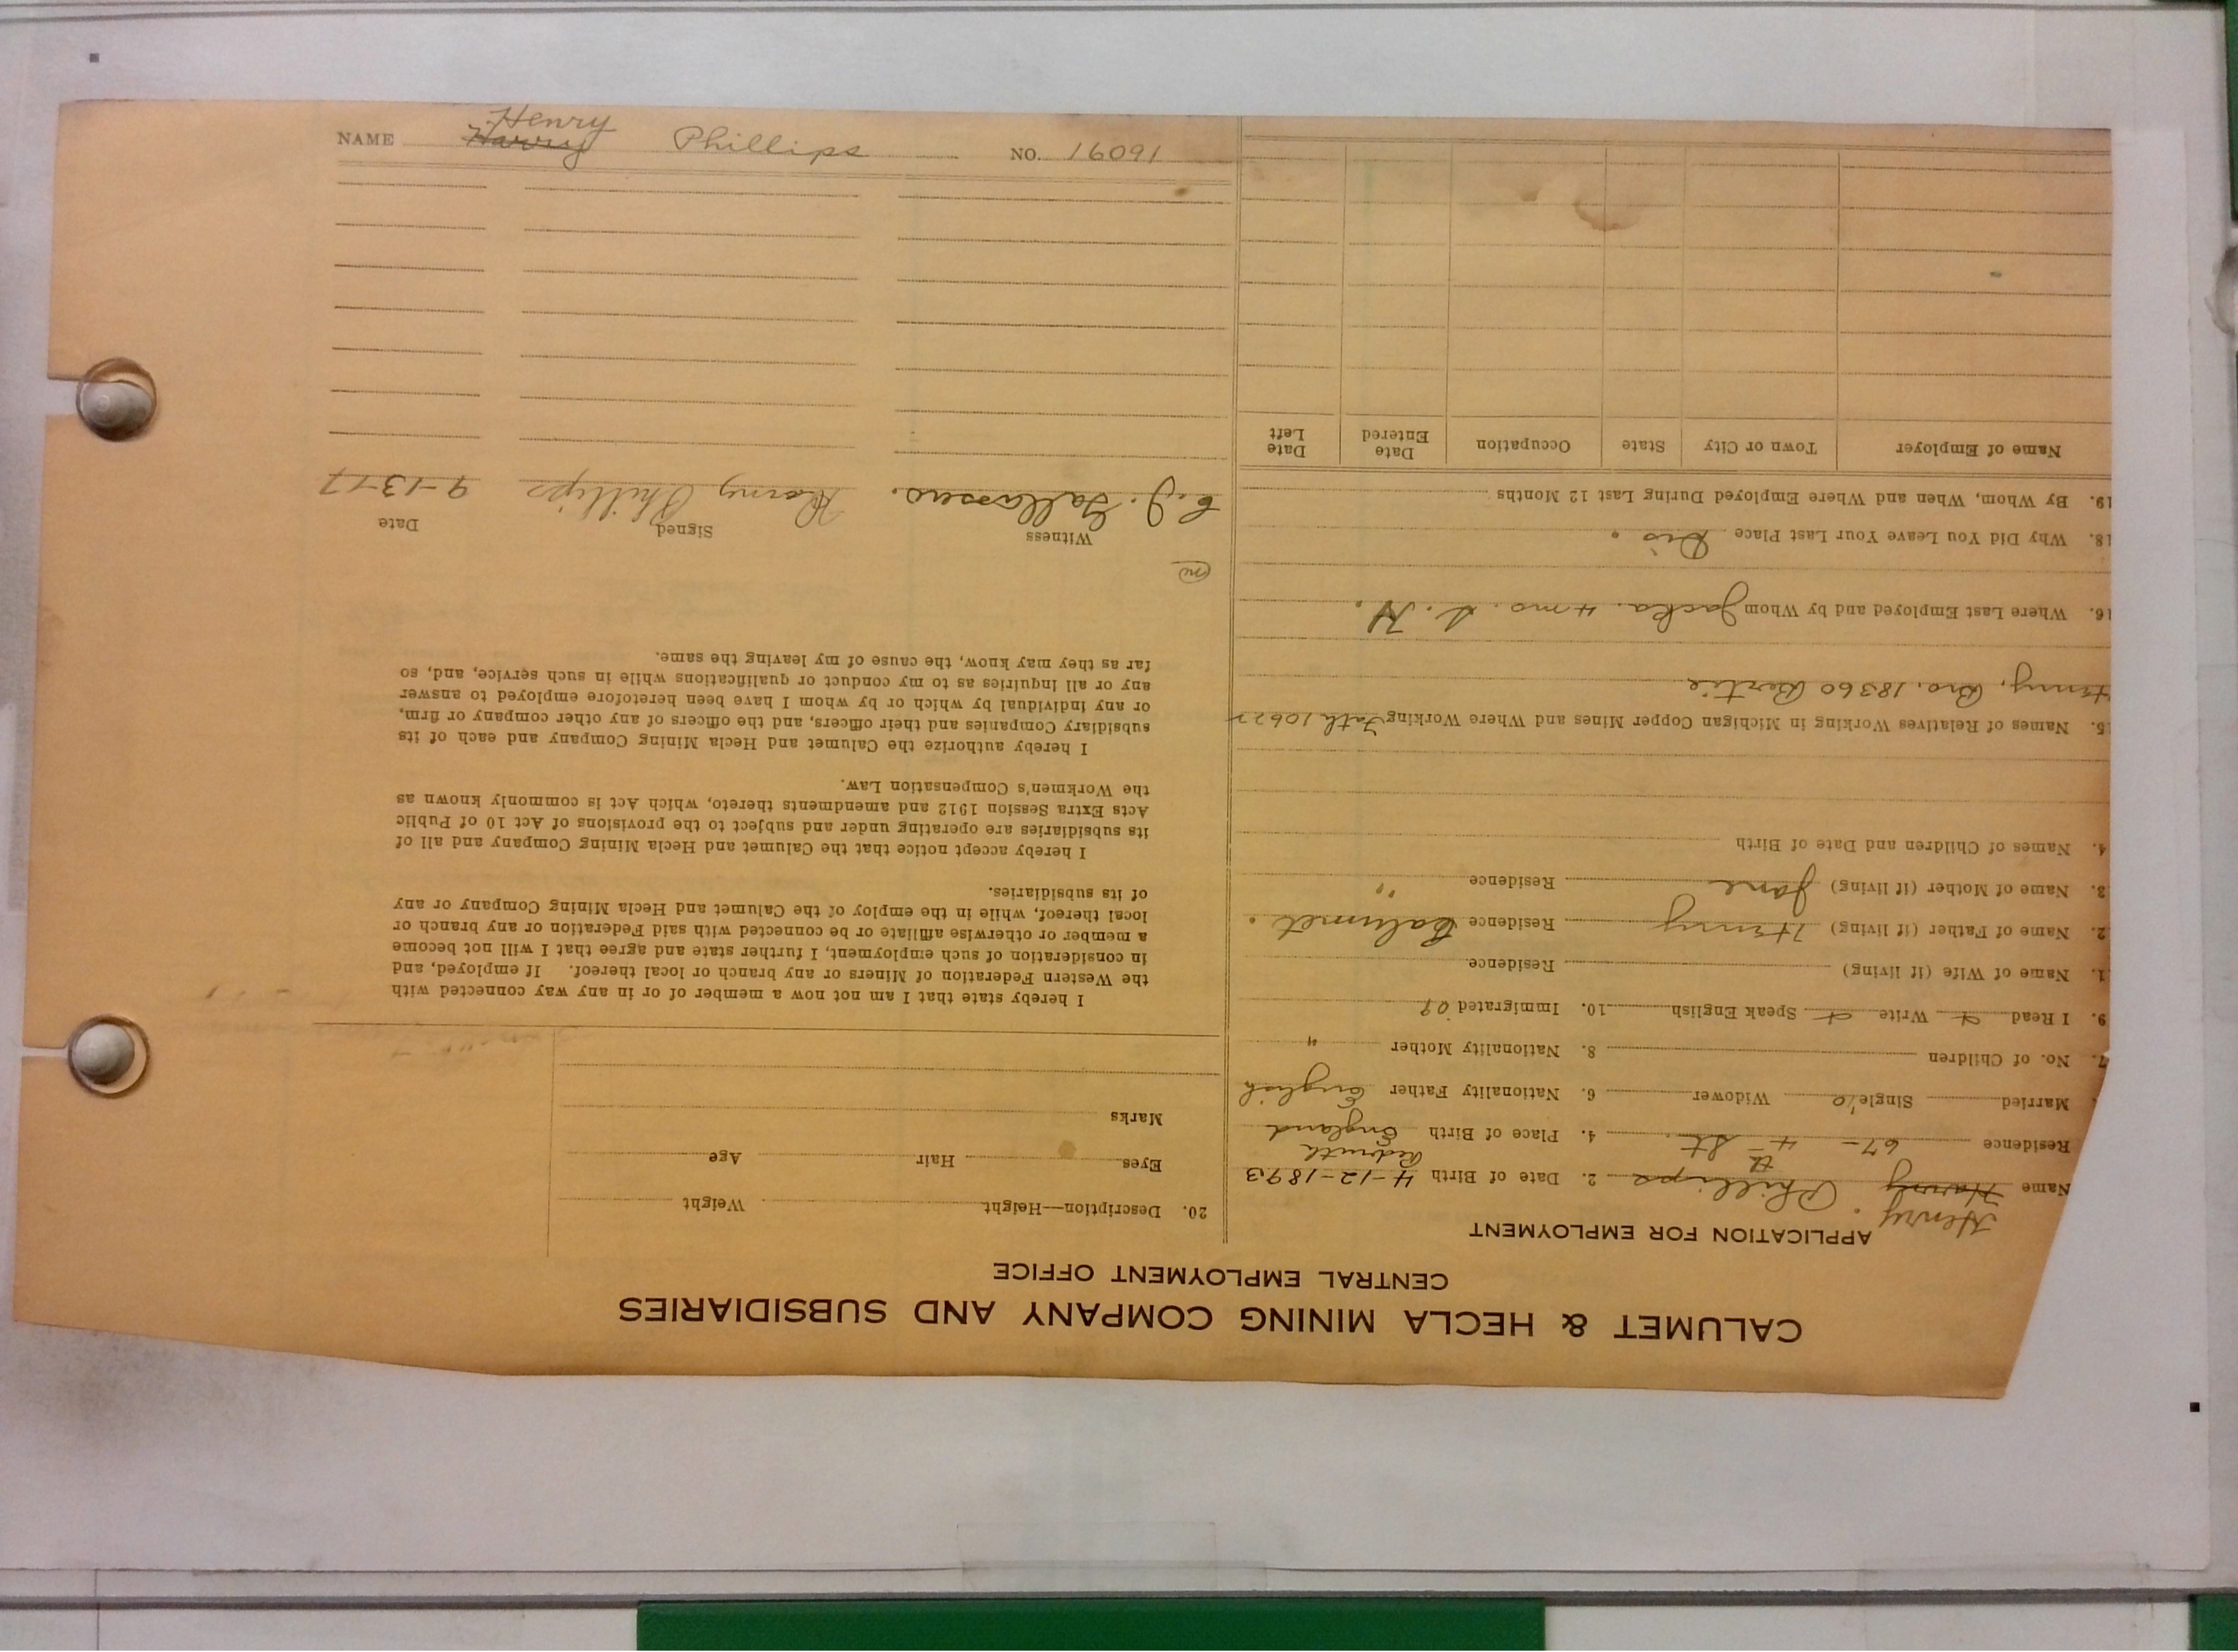 CALUMET & HECLA MINING COMPANY AND SUBSIDIARIES
CENTRAL EMPLOYMENT OFFICE
APPLICATION FOR EMPLOYMENT
Henry
Name Harry Phillips 2. Date of Birth 4-12-1893
Residence 67- 4th St. 4. Place of Birth Redruth England
Married Single Widower 6. Nationality Father English
7. No. of Children 8. Nationality Mother "
9. I Read Write Speak English 10. Immigrated 09
1. Name of Wife (if living) Residence
2. Name of Father (if living) Henry Residence Calumet.
3. Name of Mother (if living) Jane Residence "
4. Names of Children and Date of Birth
5. Names of Relatives Working in Michigan Copper Mines and Where Working Fath 10622
Henry, Bro. 18360 Bertie
16. Where Last Employed and by Whom Jacka. 4 mo. H.
18. Why Did You Leave Your Last Place Dis.
19. By Whom, When and Where Employed During Last 12 Months
Name of Employer Town or City State Occupation Date Entered Date Left
20. Description—Height Weight
Eyes Hair Age
Marks
I hereby state that I am not now a member of or in any way connected with
the Western Federation of Miners or any branch or local thereof. If employed, and
in consideration of such employment, I further state and agree that I will not become
a member or otherwise affiliate or be connected with said Federation or any branch or
local thereof, while in the employ of the Calumet and Hecla Mining Company or any
of its subsidiaries.
I hereby accept notice that the Calumet and Hecla Mining Company and all of
its subsidiaries are operating under and subject to the provisions of Act 10 of Public
Acts Extra Session 1912 and amendments thereto, which Act is commonly known as
the Workmen's Compensation Law.
I hereby authorize the Calumet and Hecla Mining Company and each of its
subsidiary Companies and their officers, and the officers of any other company or firm,
or any individual by which or by whom I have been heretofore employed to answer
any or all inquiries as to my conduct or qualifications while in such service, and, so
far as they may know, the cause of my leaving the same.
Witness Signed Date
Harry Phillips 9-13-17
Henry
NAME Harry Phillips NO. 16091